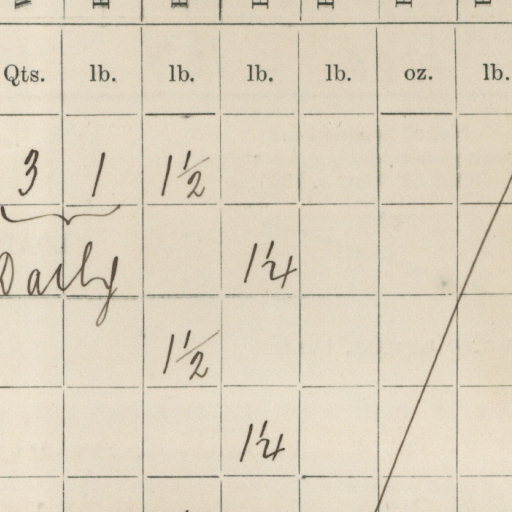 Qts. lb. lb. lb. lb. oz. lb.
3 1 1½
Daily 1¼
1½
1¼